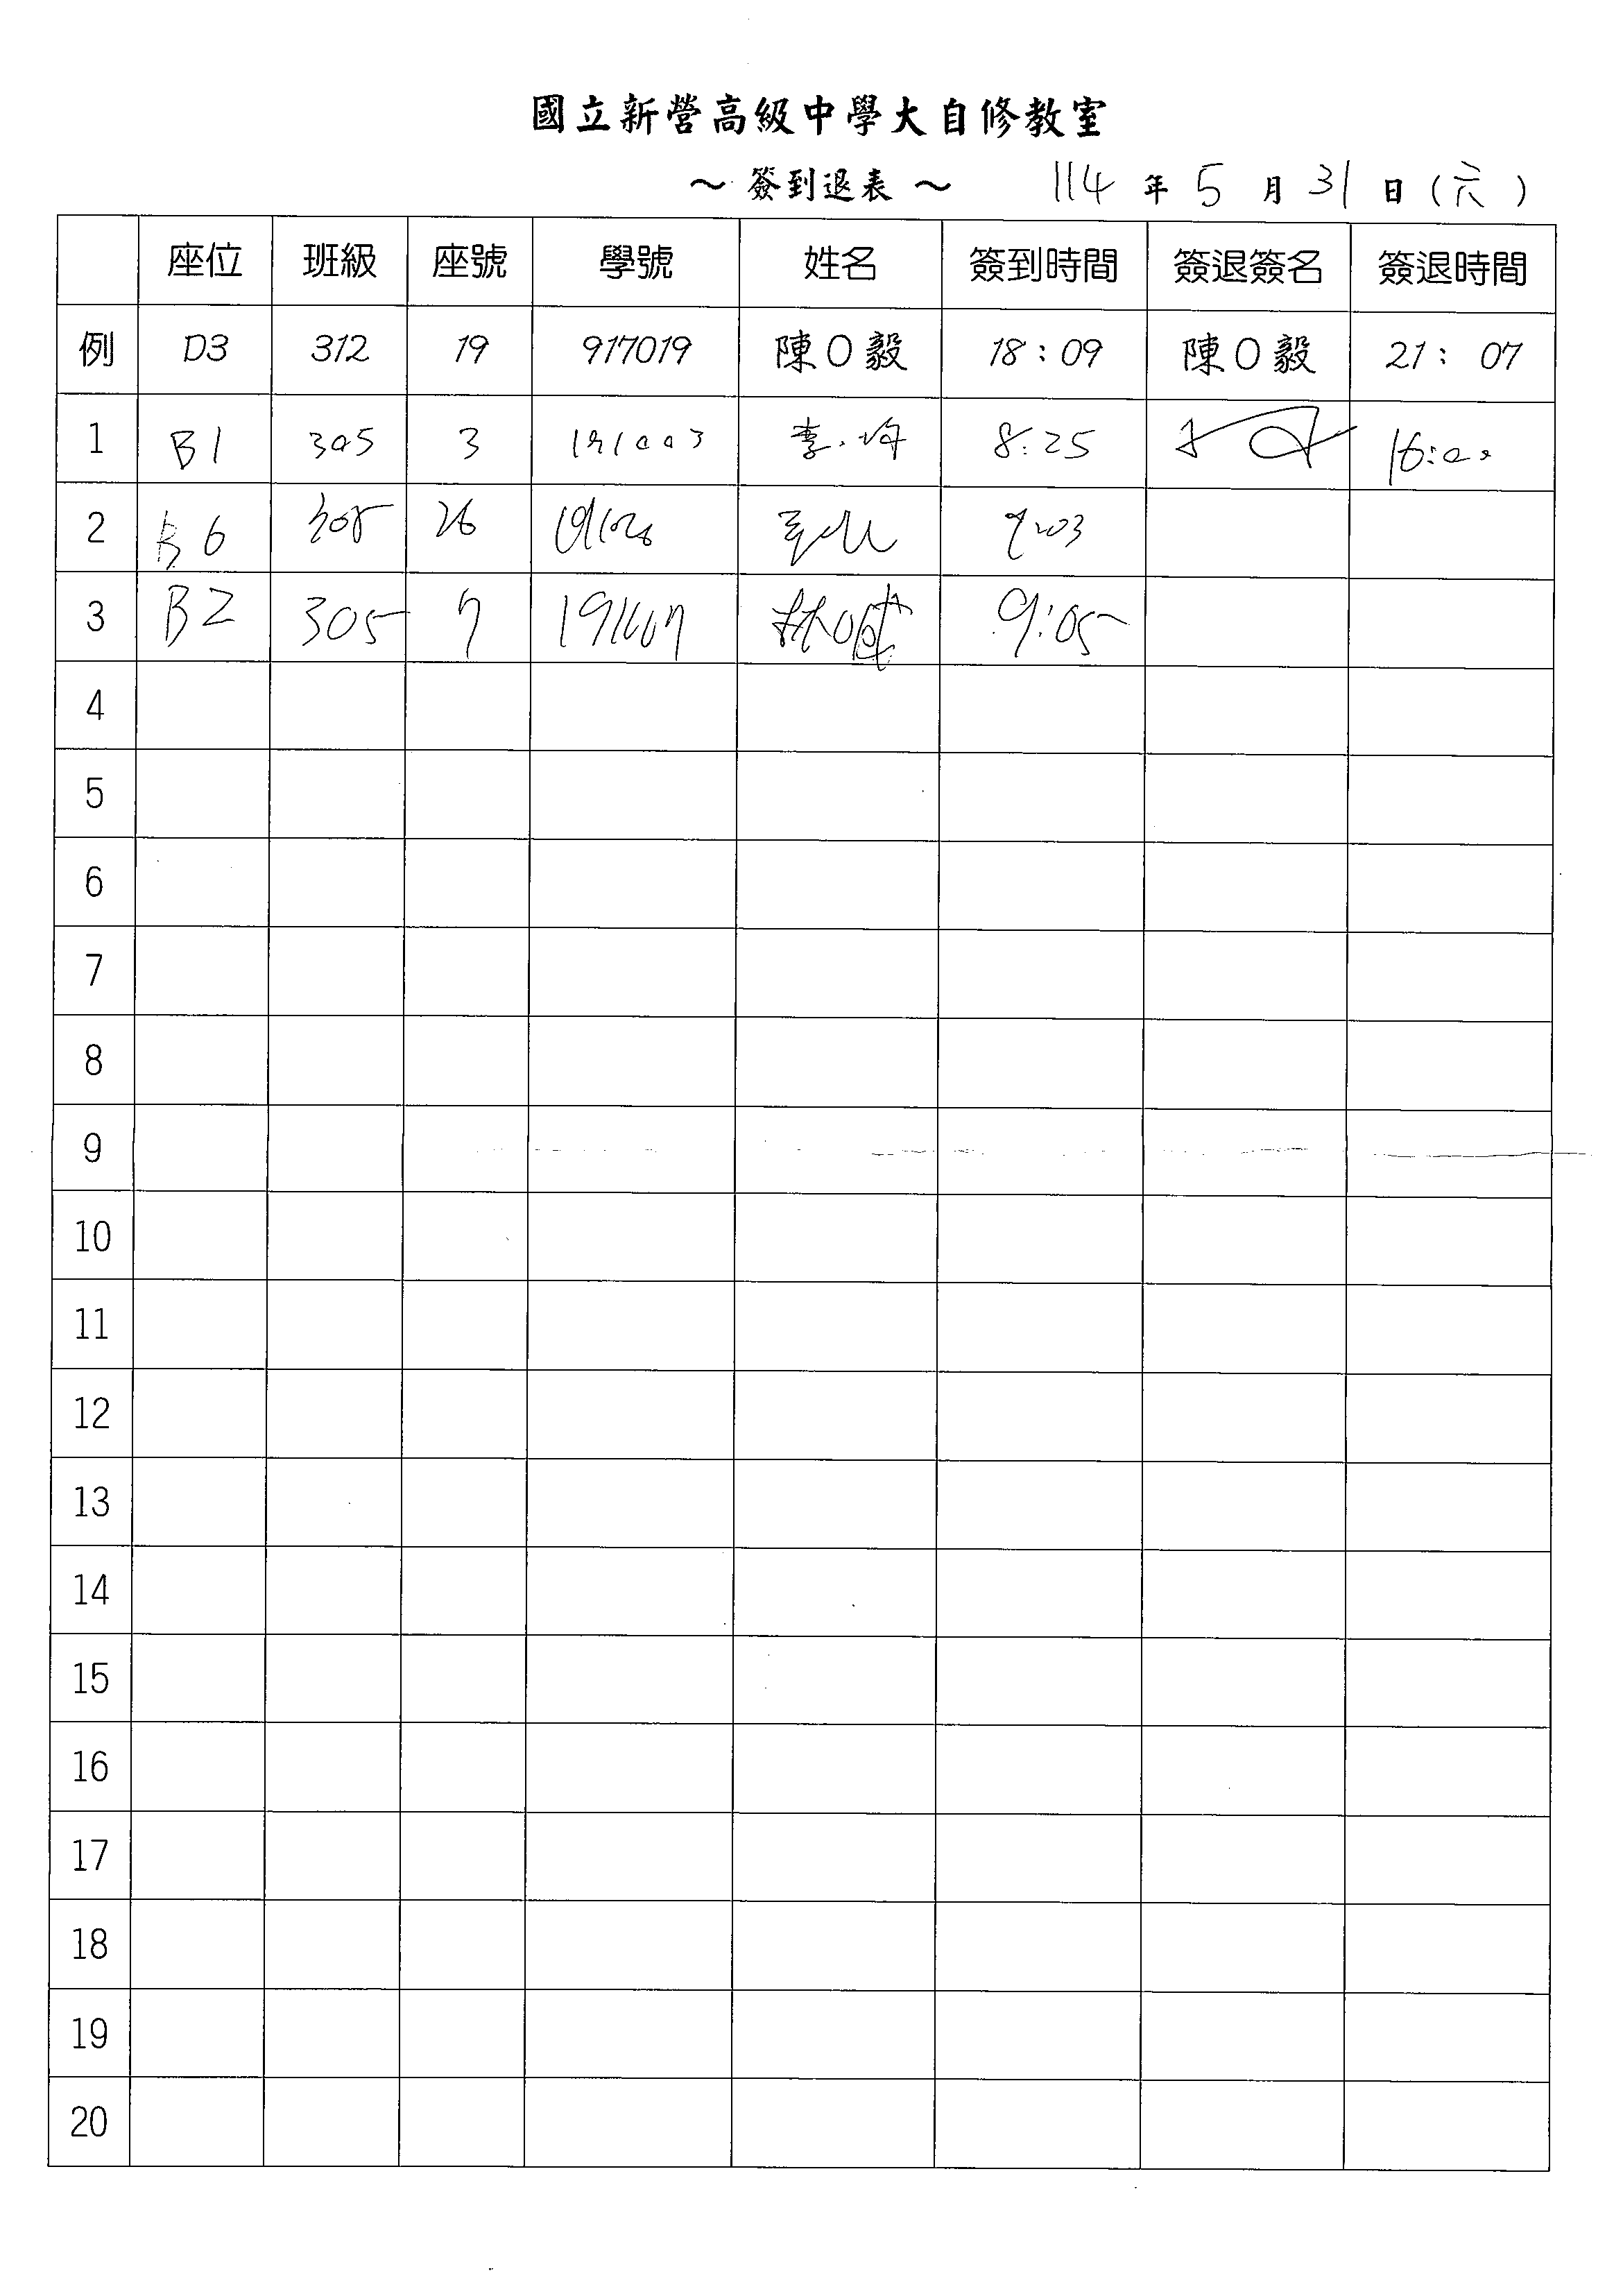 國立新營高級中學大自修教室
～簽到退表～ 114年5月31日(六)
座位 班級 座號 學號 姓名 簽到時間 簽退簽名 簽退時間
例 D3 312 19 917019 陳O毅 18:09 陳O毅 21:07
1 B1 305 3 191003 李 8:25 16:00
2 B6 305 26 9:03
3 B2 305 7 林 9:05
4
5
6
7
8
9
10
11
12
13
14
15
16
17
18
19
20